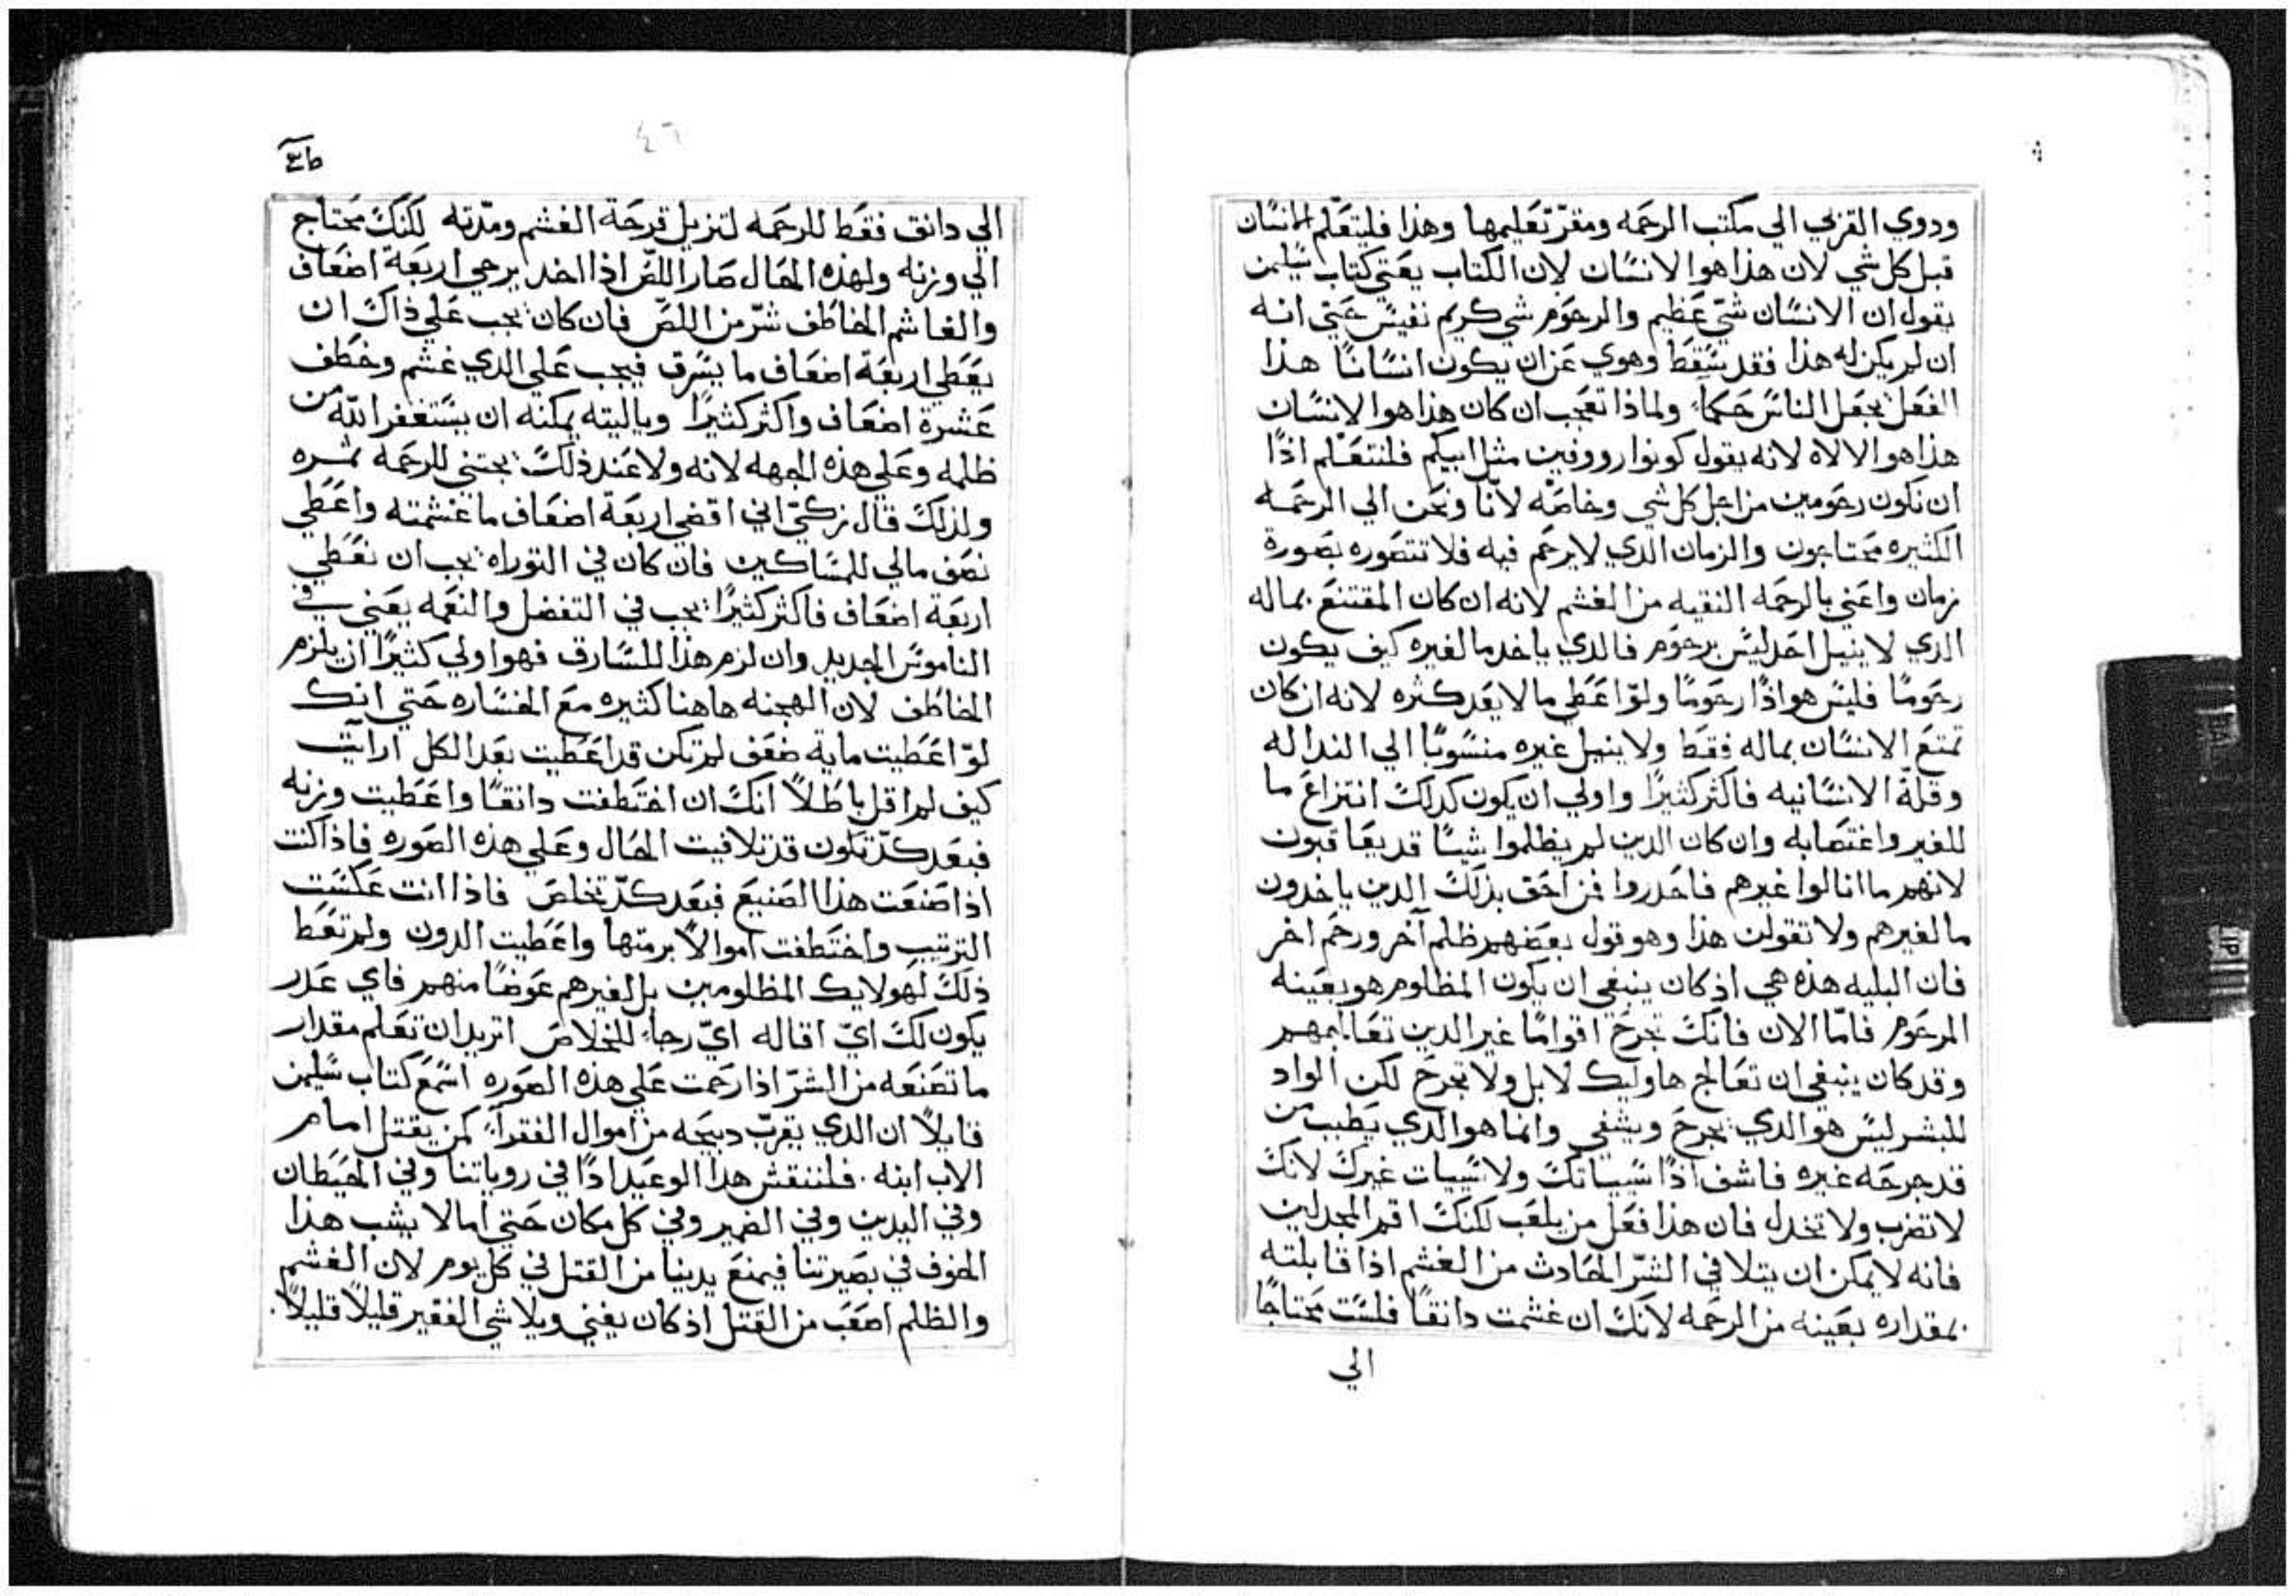 ودوي القربي الي مكتب الرحمه ومقرّ تعليمها وهذا فليتعلّم الانسان
قبل كل شي لان هذا هوا الانسان لان الكتاب يعني كتاب سليمن
يقول ان الانسان شيّ عظيم والرحوم شي كريم نفيس حتي انه
ان لم يكن له هذا فقد سقط وهوي عن ان يكون انسانا هذا
الفعل يجعل الناس حكماء ولماذا تعجب ان كان هذا هوا الانسان
هذا هوا الالاه لانه يقول كونوا رووفين مثل ابيكم فلنتعلم اذًا
ان نكون رحومين من اجل كل شي وخاصه لانّا ونحن الي الرحمه
الكثيره محتاجون والزمان الدي لا يرحم فيه فلا تتصوره بصورة
زمان واعني بالرحمه النقيه من الغشم لانه ان كان المقتنع بماله
الدي لا ينيل احد ليس برحوم فالدي ياخد ما لغيره كيف يكون
رحومًا فليس هو اذًا رحومًا ولوّ اعطي ما لا يعد كثره لانه ان كان
تمتع الانسان بماله فقط ولا ينيل غيره منسوبًا الي النداله
وقلّة الانسانيه فاكثر كثيرًا واولي ان يكون كدلك انتزاع ما
للغير واغتصابه وان كان الدين لم يظلموا شيًا قد يعاقبون
لانهم ما انالوا غيرهم فاحدروا فمن احق بذلك الدين ياخدون
ما لغيرهم ولا تقولن هذا وهو قول بعضهم ظلم آخر ورحم اخر
فان البليه هذه هي اذ كان ينبغي ان يكون المظلوم هو بعينه
المرحوم فامّا الان فانك تجرح اقوامًا غير الدين تعالجهم
وقد كان ينبغي ان تعالج هاوليك لا بل ولا تجرح لكن الواد
للبشر ليس هو الدي يجرح ويشفي وانما هو الدي يطبب من
قد جرحه غيره فاشف اذًا سيياتك ولا سييات غيرك لانك
لا تضرب ولا تخدل فان هذا فعل من يلعب لكنك اقم المجدلين
فانه لا يمكن ان يتلافي الشرّ الحادث من الغشم اذا قابلته
بمقداره بعينه من الرحمه لانك ان غشمت دانقًا فلست محتاجًا
الي
٤٦
الي دانق فقط للرحمه لتزيل قرحة الغشم ومدّته لكنك محتاج
الي وزنه ولهذه الحال صار اللصّ اذا اخد يرحي اربعة اضعاف
والغاشم الخاطف شرّ من اللصّ فان كان يجب علي ذاك ان
يعطي اربعة اضعاف ما يسرق فيجب علي الدي غشم وخطف
عشرة اضعاف واكثر كثيرًا وياليته يمكنه ان يستغفر اللّه من
ظلمه وعلي هذه الجهه لانه ولا عند ذلك يجتني للرحمه ثمره
ولذلك قال زكيّ اني اقضي اربعة اضعاف ما غشمته واعطي
نصف مالي للمساكين فان كان في التوراه يجب ان نعطي
اربعة اضعاف فاكثر كثيرًا يجب في التفضل والنعمه يعني في
الناموس الجديد وان لزم هذا للسارق فهوا ولي كثيرًا ان يلزم
الخاطف لان الهجنه هاهنا كثيره مع الخساره حتي انك
لوّ اعطيت مايه ضعف لم تكن قد اعطيت بعد الكل ارايت
كيف لم اقل باطلاً انك ان اختطفت دانقًا واعطيت وزنه
فبعد كدّ تكون قد تلافيت الحال وعلي هذه الصوره فاذا كنت
اذا صنعت هذا الصنيع فبعد كدّ تخلص فاذا انت عكست
الترتيب واختطفت اموالاً برمتها واعطيت الدون ولم تعط
ذلك لهولايك المظلومين بل لغيرهم عوضًا منهم فاي عدر
يكون لك ايّ اقاله ايّ رجاء للخلاص اتريد ان تعلم مقدار
ما تصنعه من الشرّ اذا رحمت علي هذه الصوره اسمع كتاب سليمن
قايلاً ان الدي يقرب دبيحه من اموال الفقراء كمن يقتل امام
الاب ابنه. فلننقش هذا الوعيد ادًا في روياتنا وفي الحيطان
وفي اليدين وفي الضمير وفي كل مكان حتي امالا يشب هذا
الخوف في بصيرتنا فيمنع يدينا من القتل في كل يوم لان الغشم
والظلم اصعب من القتل اذ كان يفني ويلاشي الفقير قليلاً قليلاً.